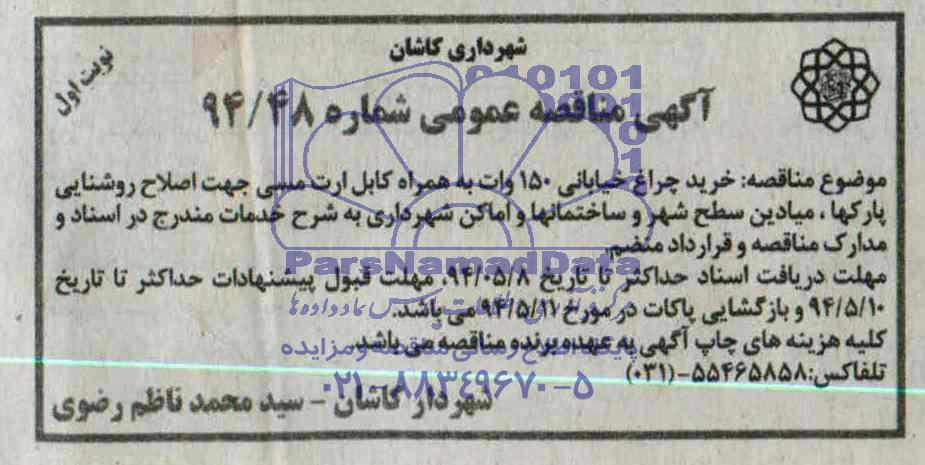 شهرداری کاشان
نوبت اول
آگهی مناقصه عمومی شماره ۹۴/۴۸
موضوع مناقصه: خرید چراغ خیابانی ۱۵۰ وات به همراه کابل ارت مسی جهت اصلاح روشنایی
پارکها، میادین سطح شهر و ساختمانها و اماکن شهرداری به شرح خدمات مندرج در اسناد و
مدارک مناقصه و قرارداد منضم.
مهلت دریافت اسناد حداکثر تا تاریخ ۹۴/۰۵/۸، مهلت قبول پیشنهادات حداکثر تا تاریخ
۹۴/۵/۱۰ و بازگشایی پاکات در مورخ ۹۴/۵/۱۱ می باشد.
کلیه هزینه های چاپ آگهی به عهده برنده مناقصه می باشد.
تلفاکس: ۵۵۴۶۵۸۵۸-(۰۳۱)
شهردار کاشان - سید محمد ناظم رضوی
ParsNamadData
پایگاه اطلاع رسانی مناقصه و مزایده
۰۲۱-۸۸۳۴۹۶۷۰-۵